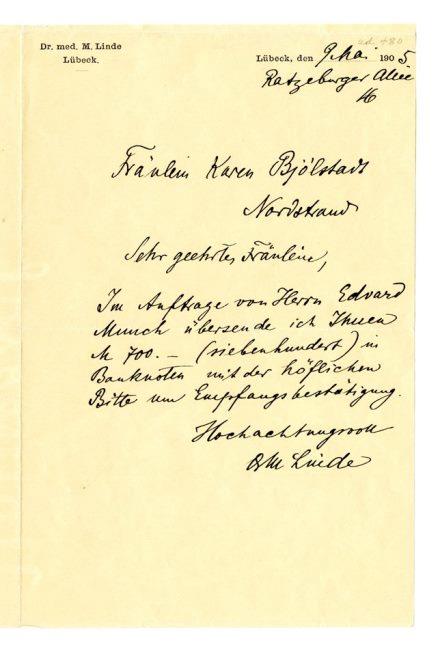 Dr. med. M. Linde
Lübeck.
Lübeck, den 9 Mai 1905
Ratzeburger Allee
16
Fräulein Karen Bjölstadt
Nordstrand
Sehr geehrtes Fräulein,
Im Auftrage von Herrn Edvard
Munch übersende ich Ihnen
M 700.- (siebenhundert) in
Banknoten mit der höflichen
Bitte um Empfangsbestätigung.
Hochachtungsvoll
Linde